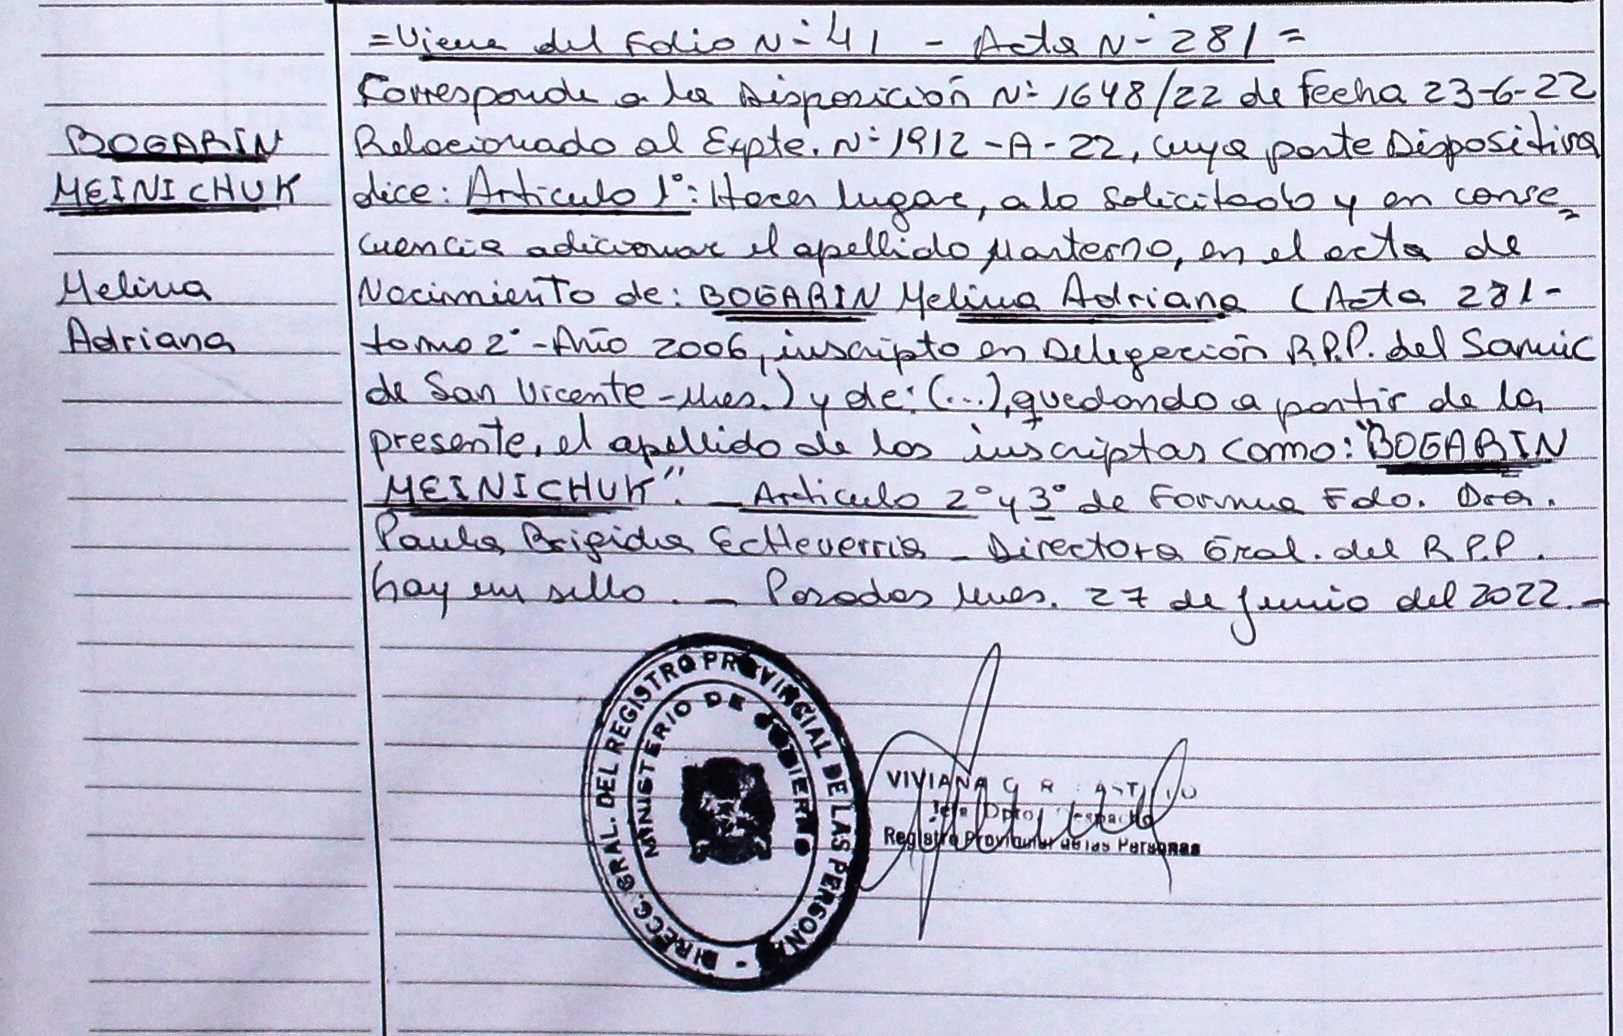 =Viene del Folio N° 41 - Acta N° 281=
Corresponde a la Disposición N° 1648/22 de fecha 23-6-22
BOGARIN
Relacionado al Expte. N° 1912-A-22, cuya parte Dispositiva
MEINICHUK
dice: Articulo 1°: Hacer lugar, a lo solicitado y en conse=
cuencia adicionar el apellido Materno, en el acta de
Melina
Nacimiento de: BOGARIN Melina Adriana (Acta 281-
Adriana
tomo 2° - Año 2006, inscripto en Delegación R.P.P. del Samic
de San Vicente - Mnes.) y de: (...), quedando a partir de la
presente, el apellido de las inscriptas como: "BOGARIN
MEINICHUK". _ Articulo 2° y 3° de Forma Fdo. Dra.
Paula Brigida Echeverria _ Directora Gral. del R.P.P.
hay un sello. _ Posadas Mnes. 27 de Junio del 2022._
DIRECC. GRAL. DEL REGISTRO PROVINCIAL DE LAS PERSONAS -
MINISTERIO DE GOBIERNO
VIVIANA
Dpto. Despacho
Registro Provincial de las Personas